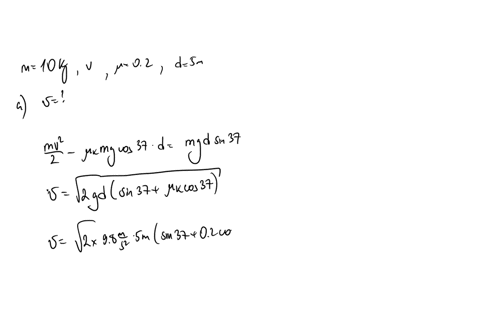 m=10kg, v, μ=0.2, d=5m
a) v=?
mv²/2 - μk mg cos 37 · d = mgd sin 37
v = √(2gd(sin 37 + μk cos 37))
v = √2 × 9.8 m/s² · 5m (sin 37 + 0.2 co